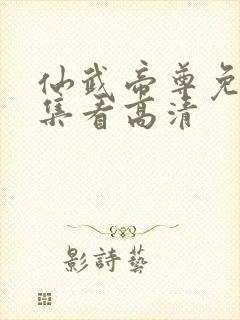 仙武帝尊免
集看高清
影詩藝